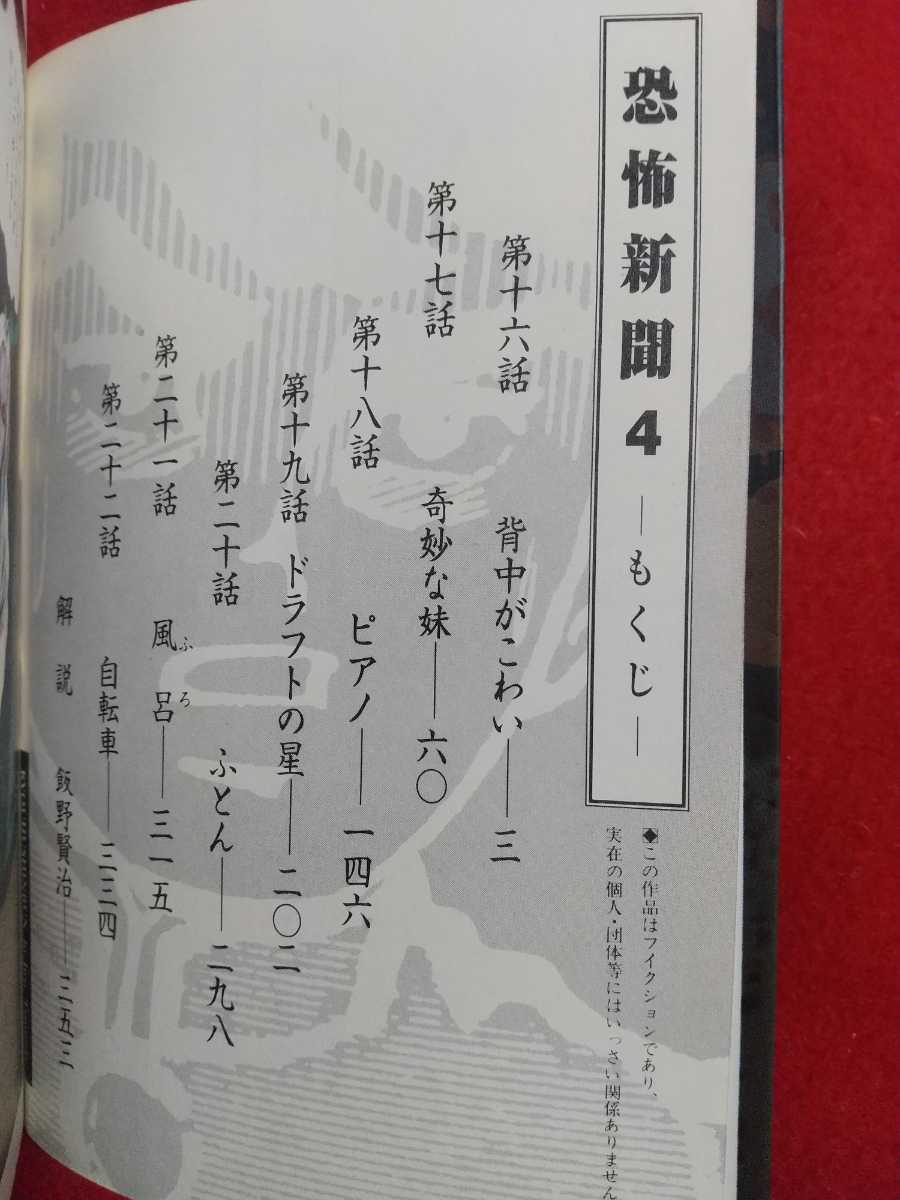 恐怖新聞4
―もくじ―
◆この作品はフィクションであり、
実在の個人・団体等にはいっさい関係ありません
第十六話 背中がこわい――三
第十七話 奇妙な妹――六〇
第十八話 ピアノ――一四六
第十九話 ドラフトの星――二〇二
第二十話 ふとん――二九八
第二十一話 風呂ふろ――三一五
第二十二話 自転車――三三四
解説 飯野賢治――三五三